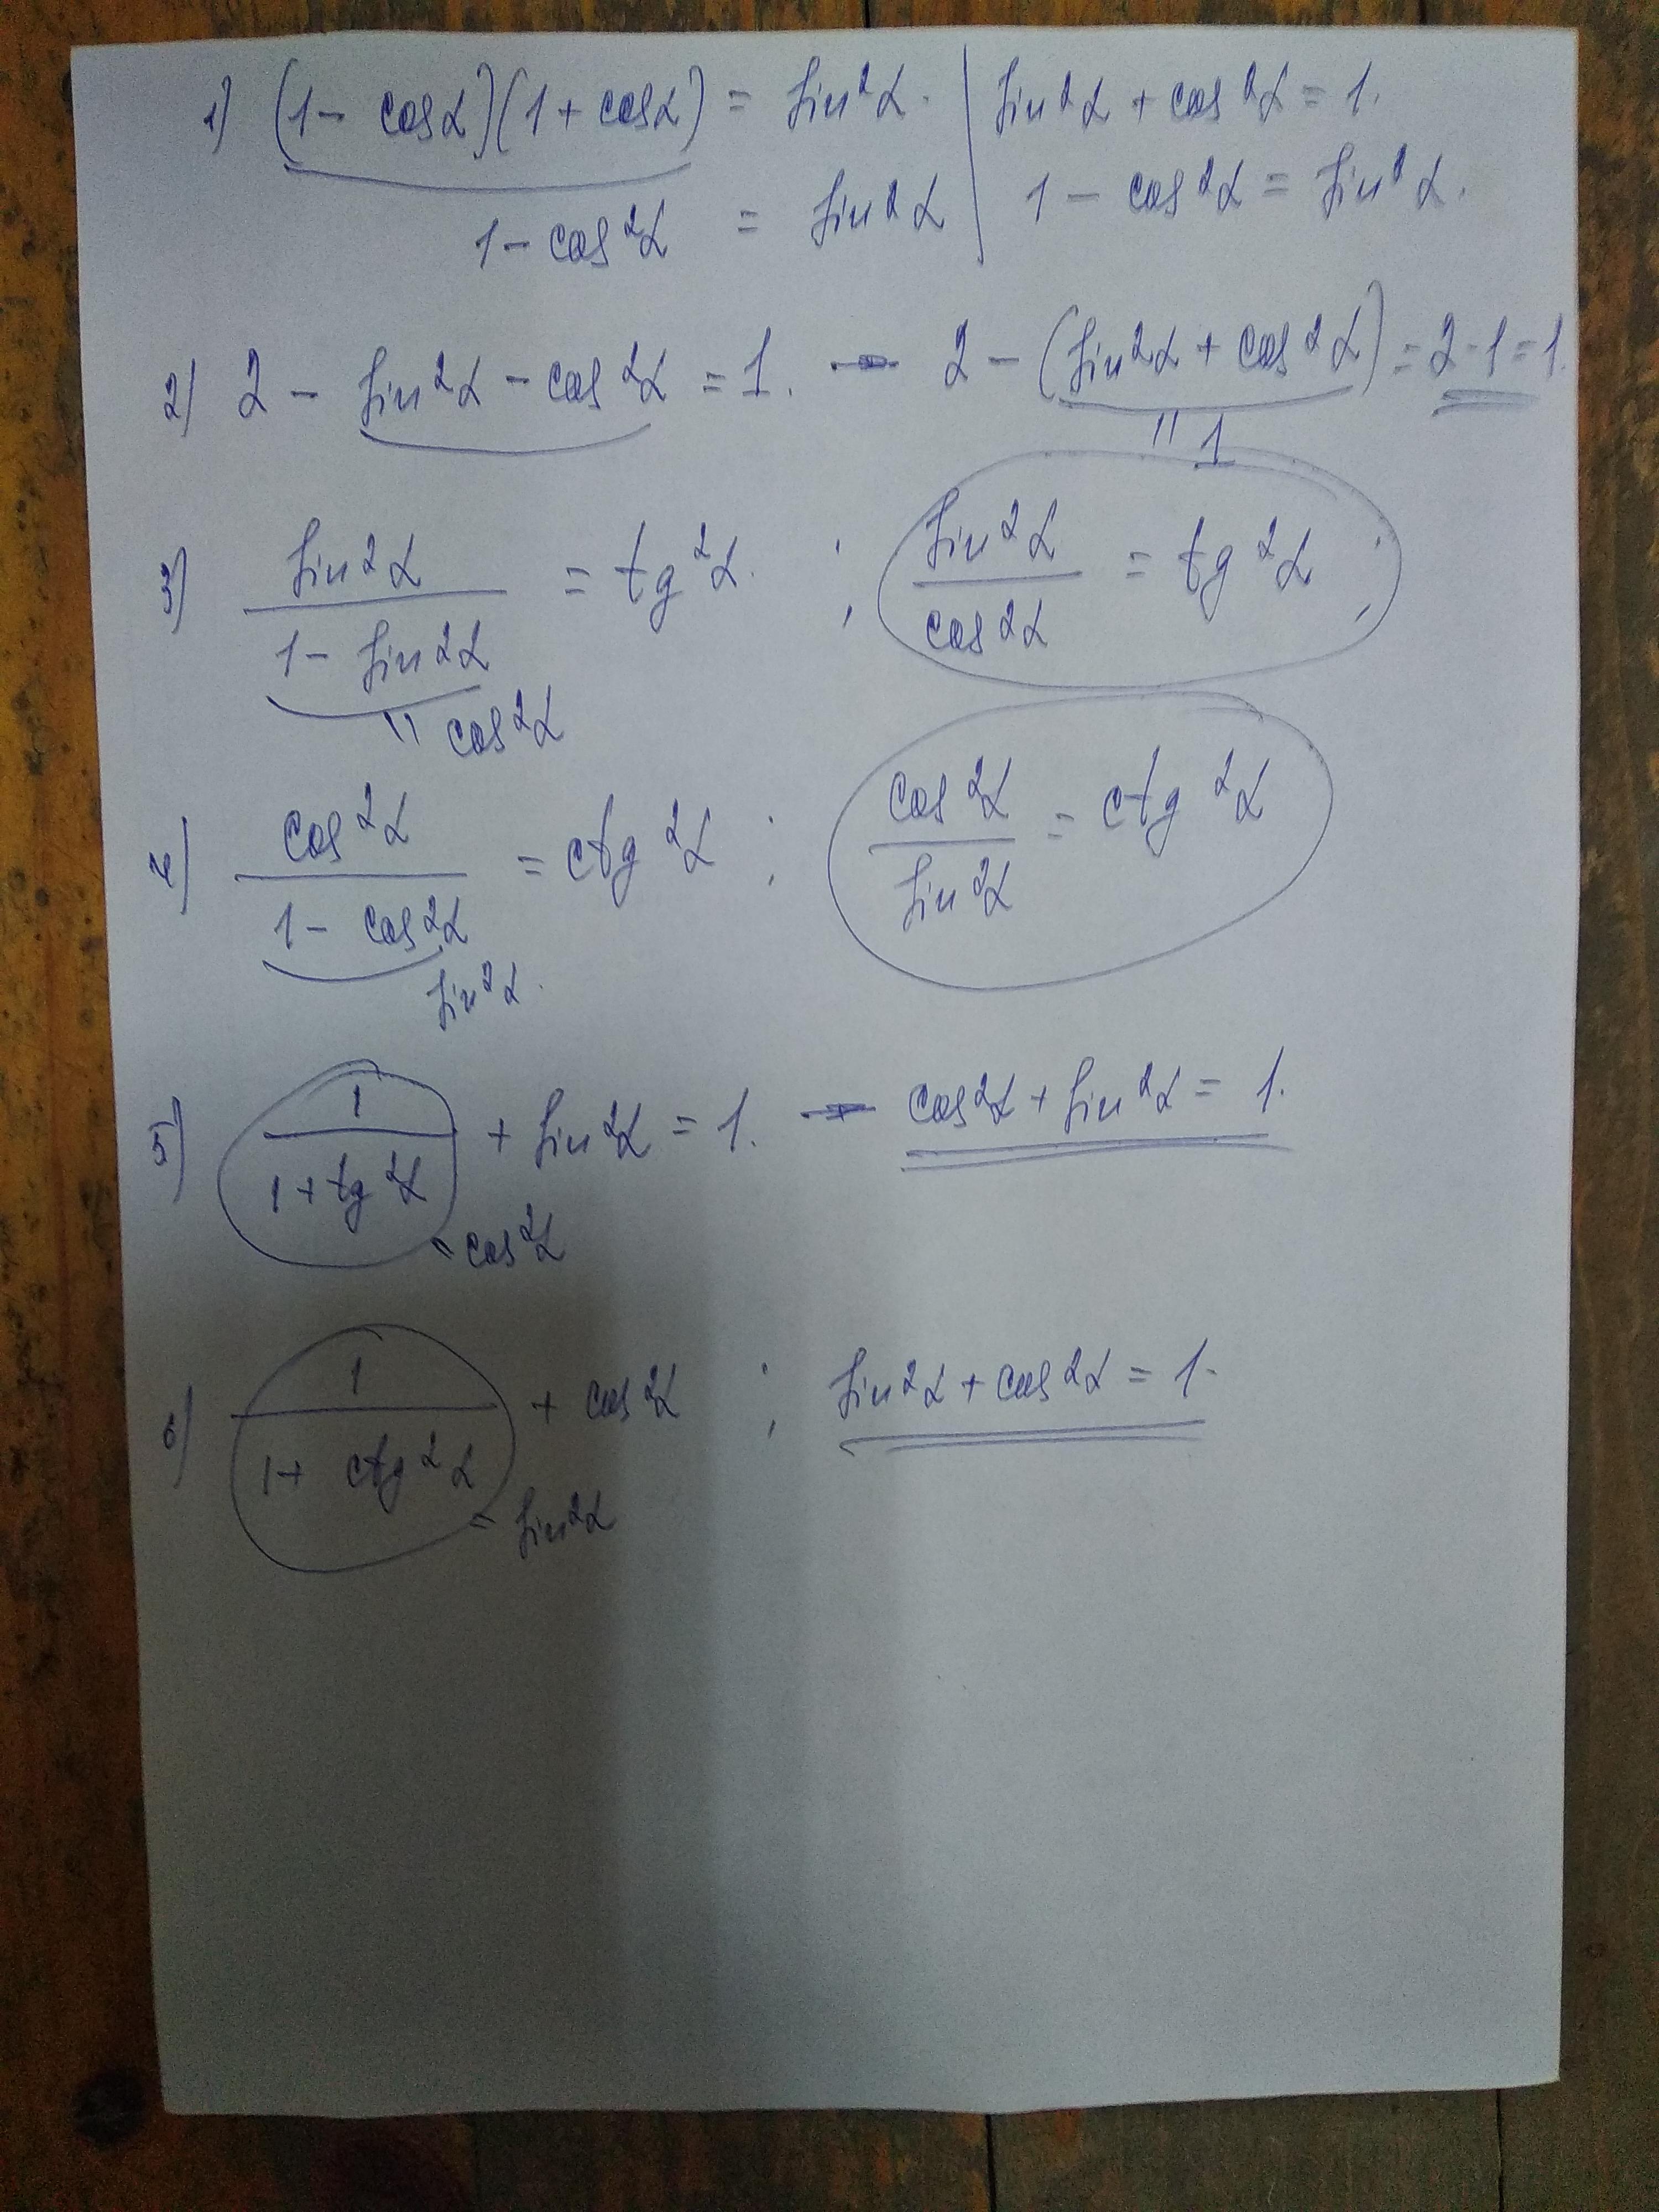 1) (1 - cosα)(1 + cosα) = sin²α. | sin²α + cos²α = 1.
1 - cos²α = sin²α | 1 - cos²α = sin²α.
2) 2 - sin²α - cos²α = 1. - 2 - (sin²α + cos²α) = 2 - 1 = 1.
" 1
3) sin²α / (1 - sin²α) = tg²α. ; sin²α / cos²α = tg²α ;
" cos²α
4) cos²α / (1 - cos²α) = ctg²α ; cos²α / sin²α = ctg²α
sin²α.
5) 1 / (1 + tg²α) + sin²α = 1. - cos²α + sin²α = 1.
= cos²α
6) 1 / (1 + ctg²α) + cos²α ; sin²α + cos²α = 1.
= sin²α